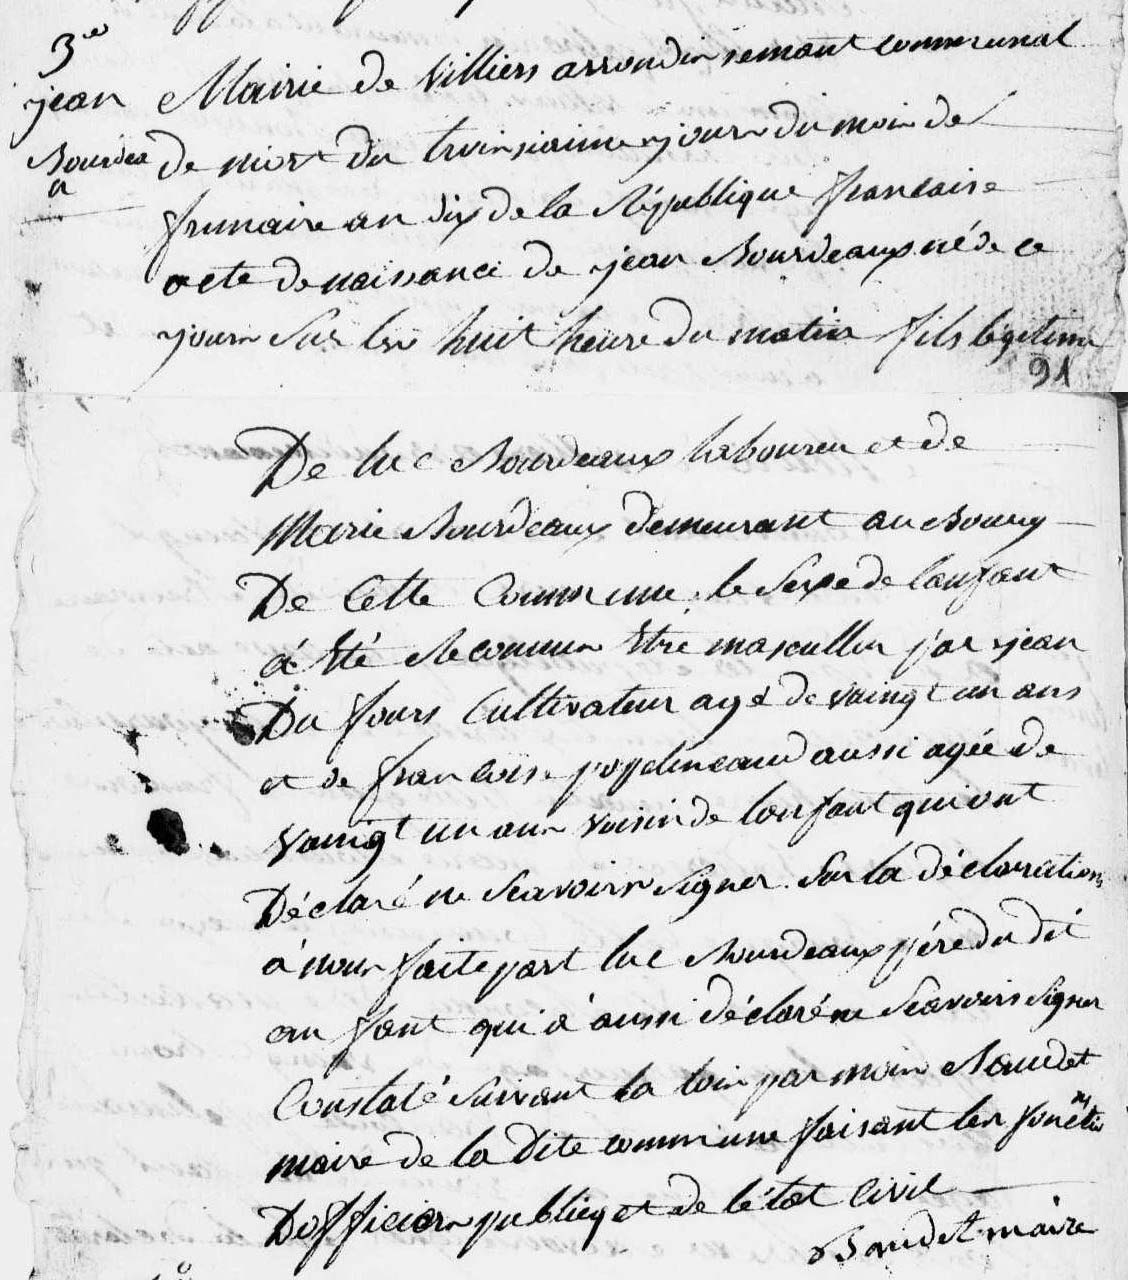 3e
jean
Bourdea
u
Mairie de Villiers arrondinsemant communal
de niort du troinsiaime journ du moin de
frimaire an dix de la République francaise
acte de naissance de jean Bourdeaux né de ce
journ Sur len huit heure du matin fils légetime
91
De luc Bourdeaux laboureu et de
Marie Bourdeaux demeurant au Bourg
De Cette Commune, le Sexe de lanfant
á Eté Reconnun Etre masculien par jean
Du fours Cultivateur agé de vaingt un ans
et de francoise aussi agée de
vaingt un ann voisin de lanfant qui ont
Déclaré ne Scavoirn Signer. Sur la déclaration
á noun faite part luc Bourdeaux pére du dit
anfant qui á aussi déclaré ne Scavoir Signer
Constaté Suivant la loin par moin Baudet
maire de la dite commune faisant len fonction
Dofficiern publicq et de létat Civil
Baudet maire